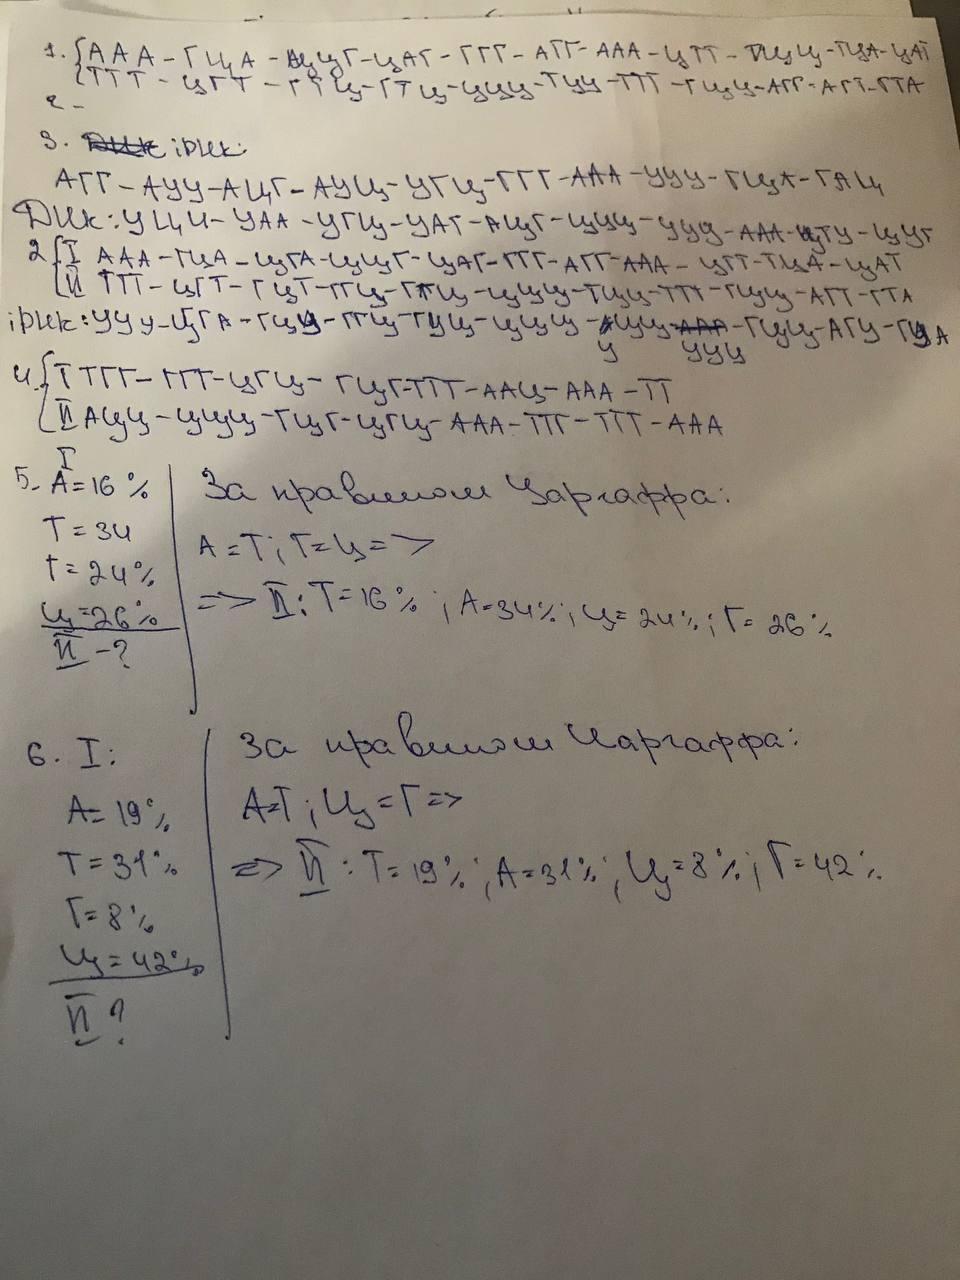 1. ААА - ГЦА - ЦЦГ - ЦАГ - ГГГ - АГГ - ААА - ЦТТ - ТЦА - ЦАТ
ТТТ - ЦГТ - ГТЦ - ЦЦЦ - ТЦЦ - ТТТ - ГЦЦ - АГТ - ГТА
2 -
3. іРНК:
АГГ - АУУ - АЦГ - АУЦ - УГЦ - ГГГ - ААА - УУУ - ГЦА - ГАЦ
ДНК: УЦЦ - УАА - УГЦ - УАГ - АЦГ - ЦЦЦ - УУУ - ААА - ЦГУ - ЦУГ
2 I ААА - ГЦА - ЦГА - ЦЦГ - ЦАГ - ГГГ - АГГ - ААА - ЦГГ - ТЦА - ЦАТ
II ТТТ - ЦГТ - ГЦТ - ГГЦ - ГТЦ - ЦЦЦ - ТЦЦ - ТТТ - ГЦЦ - АГТ - ГТА
іРНК: УУУ - ЦГА - ГЦУ - ГГЦ - ГУЦ - ЦЦЦ - УЦЦ - УУУ - ГЦЦ - АГУ - ГУА
4. I ТГГ - ГГГ - ЦГЦ - ГЦГ - ТТТ - ААЦ - ААА - ТТ
II АЦЦ - ЦЦЦ - ГЦГ - ЦГЦ - ААА - ТТГ - ТТТ - ААА
I
5. А = 16 %
Т = 34
Г = 24 %
Ц = 26 %
II - ?
За правилом Чаргаффа:
А = Т; Г = Ц =>
=> II: Т = 16 %; А = 34 %; Ц = 24 %; Г = 26 %
6. I:
А = 19 %
Т = 31 %
Г = 8 %
Ц = 42 %
II ?
За правилом Чаргаффа:
А = Т; Ц = Г =>
=> II: Т = 19 %; А = 31 %; Ц = 8 %; Г = 42 %